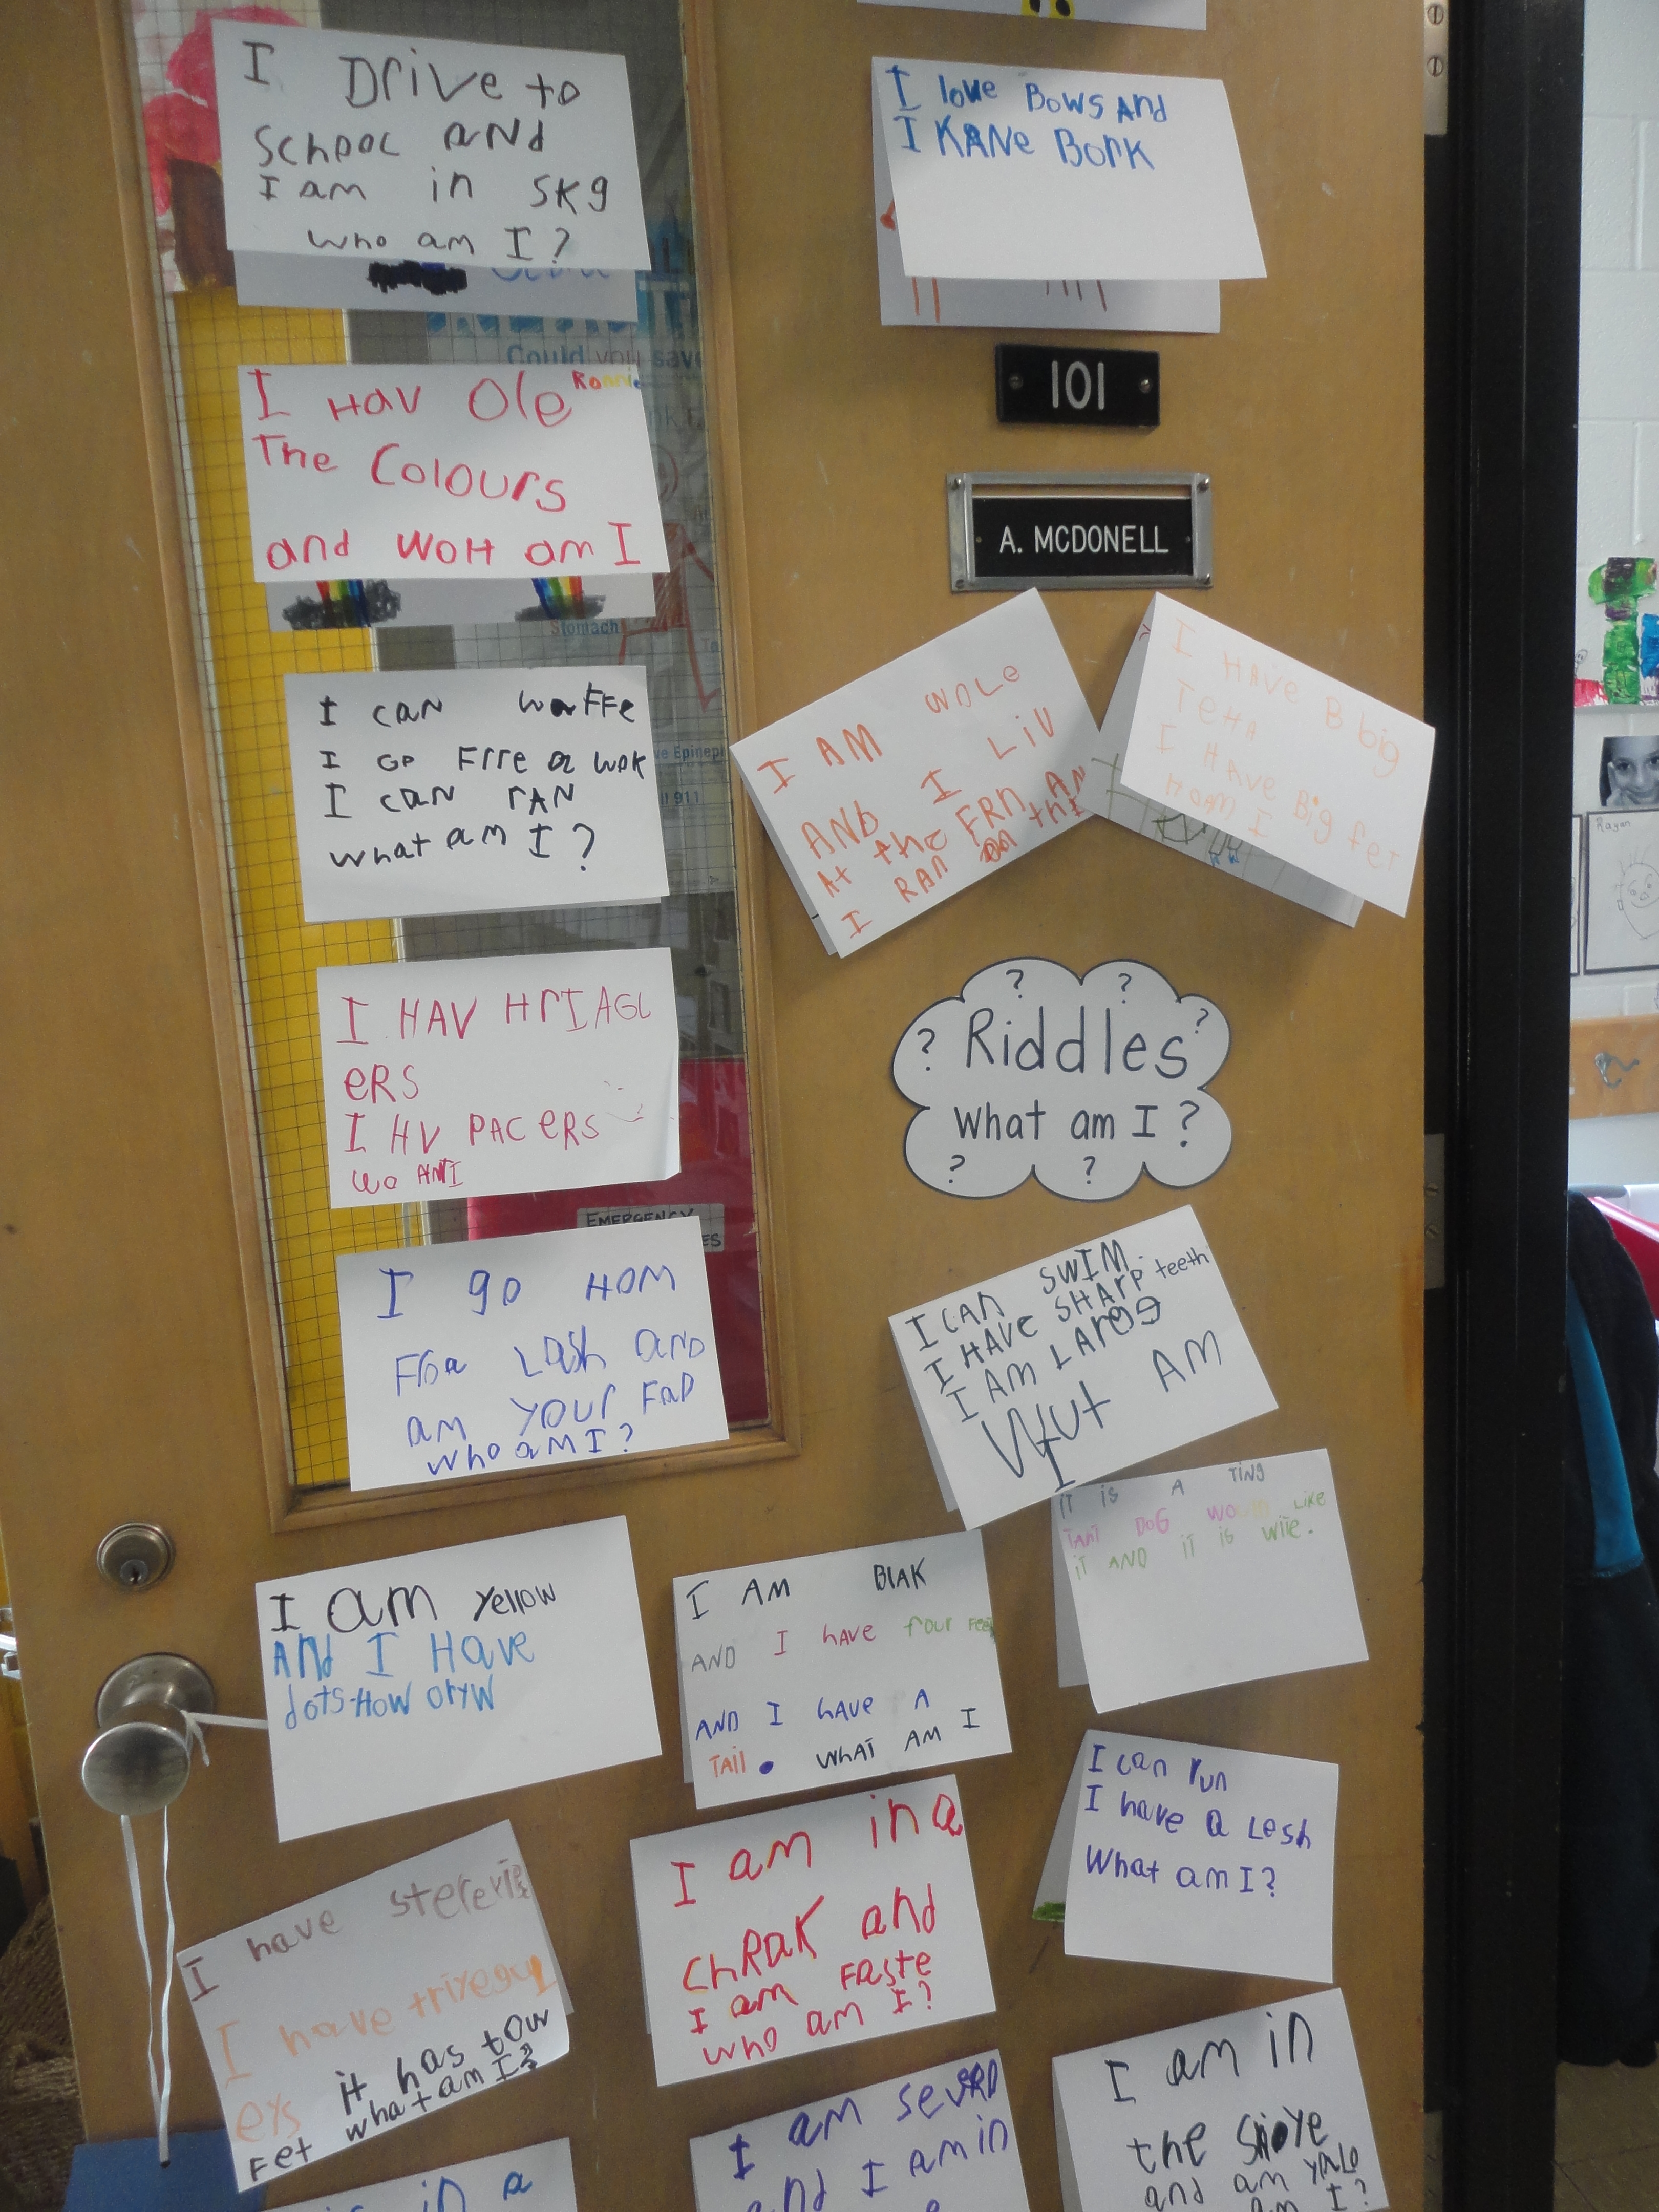 I Drive to
School and
I am in SKg
who am I?
I Hav Ole Ronnie
The Colours
and WOH am I
I can waffe
I Go Frre a wak
I can rAN
what am I?
I HAV HrIAGL
eRS
I HV PACeRS
wo AMI
I go Hom
Froa Lash and
am your FaD
who am I?
I am yellow
And I Have
dots-How oryw
I have
I have
eys it has tow
Fet what am I?
I love Bows And
I KANe Bork
101
A. MCDONELL
I AM WOLe
AND I LiV
At the FRN AN
I RAN on thI
I HAVe B big
TeHH
I HAve Big feT
HoAm I
Riddles
What am I?
I CAN SWIM.
I HAVe SHArP teeth
I AM LArgg
Wut AM
I
iT is A TiNg
TAhT DoG LiKe
iT AND iT is WiTe.
I AM BlAK
AND I hAve four Feet
AND I hAve A
TAil. WhAT AM I
I can run
I have a Lesh
What am I?
I am in a
ChRaK and
I am Faste
who am I?
I am
and I am in
I am in
the
and am yalo
am I?
in a
Could you save
Stomach
EMERGENCY
Rayan